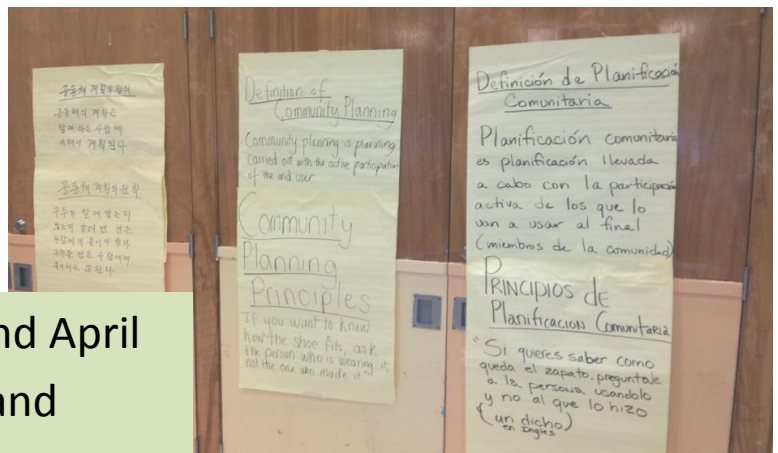 공동체 계획의 정의
공동체의 계획은
참여하는 사람에
의해서 계획된다
공동체 계획의 원칙
구두가
사람에게
구두를 만든 사람에게
Definition of
Community Planning
Community planning is planning
carried out with the active participation
of the end user
Community
Planning
Principles
"If you want to know
how the shoe fits, ask
the person who is wearing it,
not the one who made it"
Definición de Planificación
Comunitaria
Planificación comunitaria
es planificación llevada
a cabo con la participación
activa de los que lo
van a usar al final
(miembros de la comunidad)
PRINCIPIOS dE
Planificacion Comunitaria
"Si quieres saber como
queda el zapato, preguntale
a la persona usandolo
y no al que lo hizo
(un dicho)
en Ingles
nd April
and